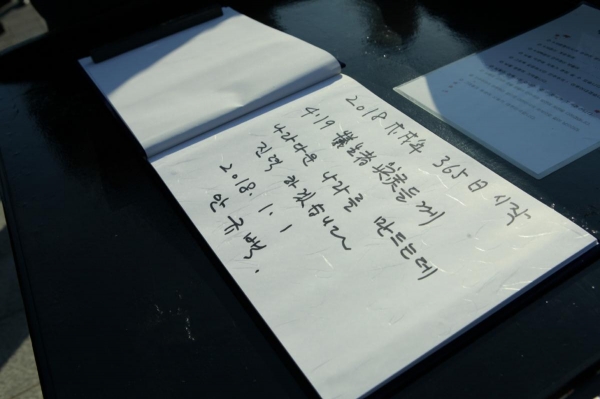 2018 戊戌年 365日 시작
4·19 犧生者 英灵들께
나라다운 나라를 만드는데
진력 하겠습니다
2018. 1. 1
안규백.